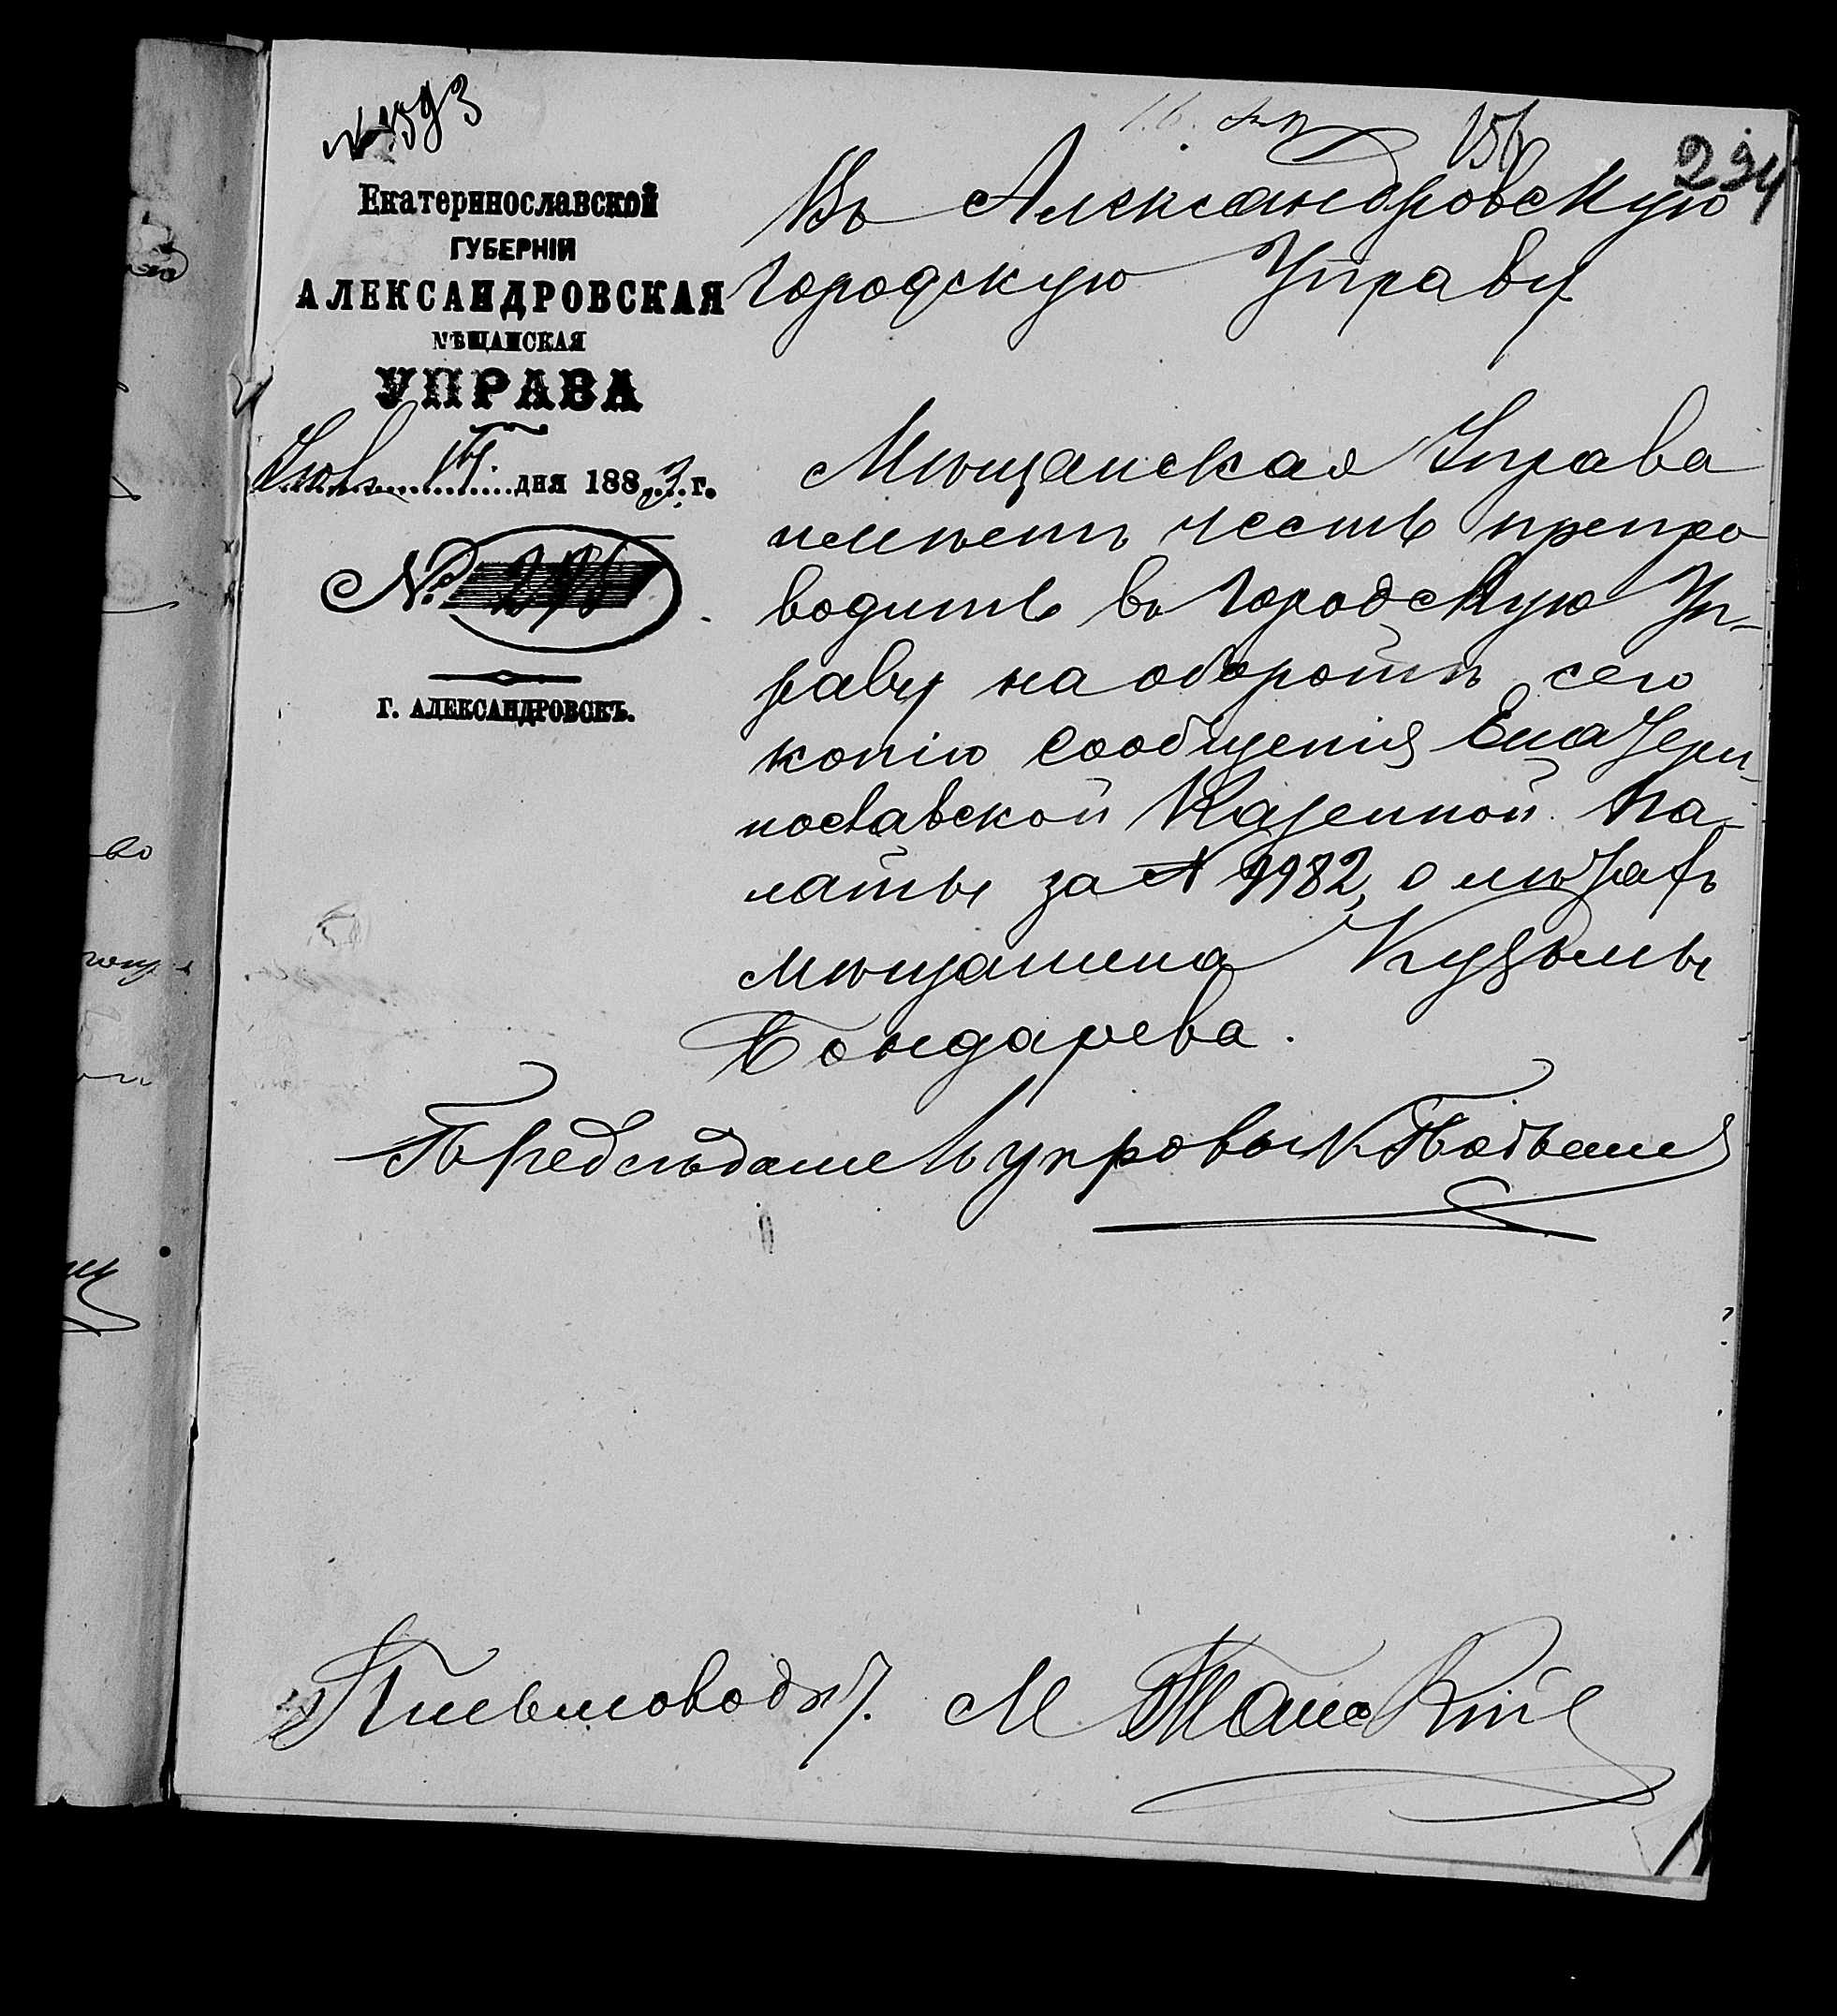 № 1593
156
234
Екатеринославской
ГУБЕРНІИ
АЛЕКСАНДРОВСКАЯ
МѢЩАНСКАЯ
УПРАВА
Іюля 14 дня 1883 г.
№
Г. АЛЕКСАНДРОВСКЪ.
Въ Александровскую
Городскую Управу
Мѣщанская Управа
имѣетъ честь препро
водить въ Городскую Уп-
раву на оборотѣ сего
копію сообщенія Екатери
нославской Казенной Па-
латы за № 7982, о
мѣщанина Кузьмы
Бондарева.
Предсѣдатель управы
Письмоводит. М